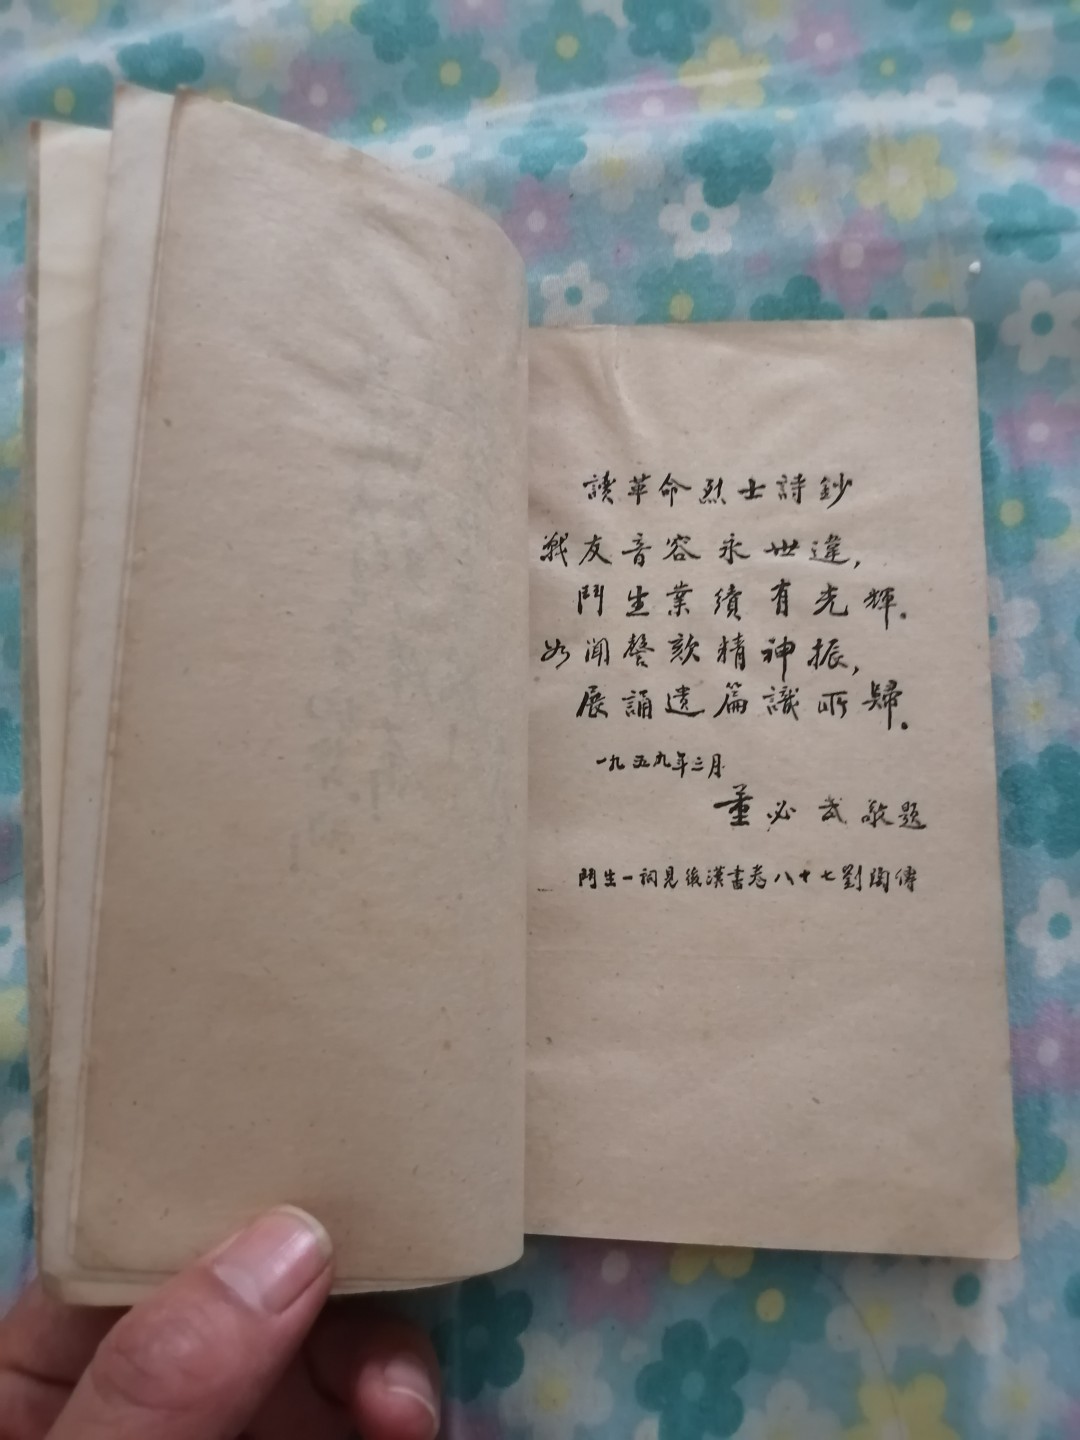 讀革命烈士詩鈔
戰友音容永世違,
鬥生業績有光輝。
如聞謦欬精神振,
展誦遺篇識所歸。
一九五九年三月
董必武敬題
鬥生一詞見後漢書卷八十七劉陶傳